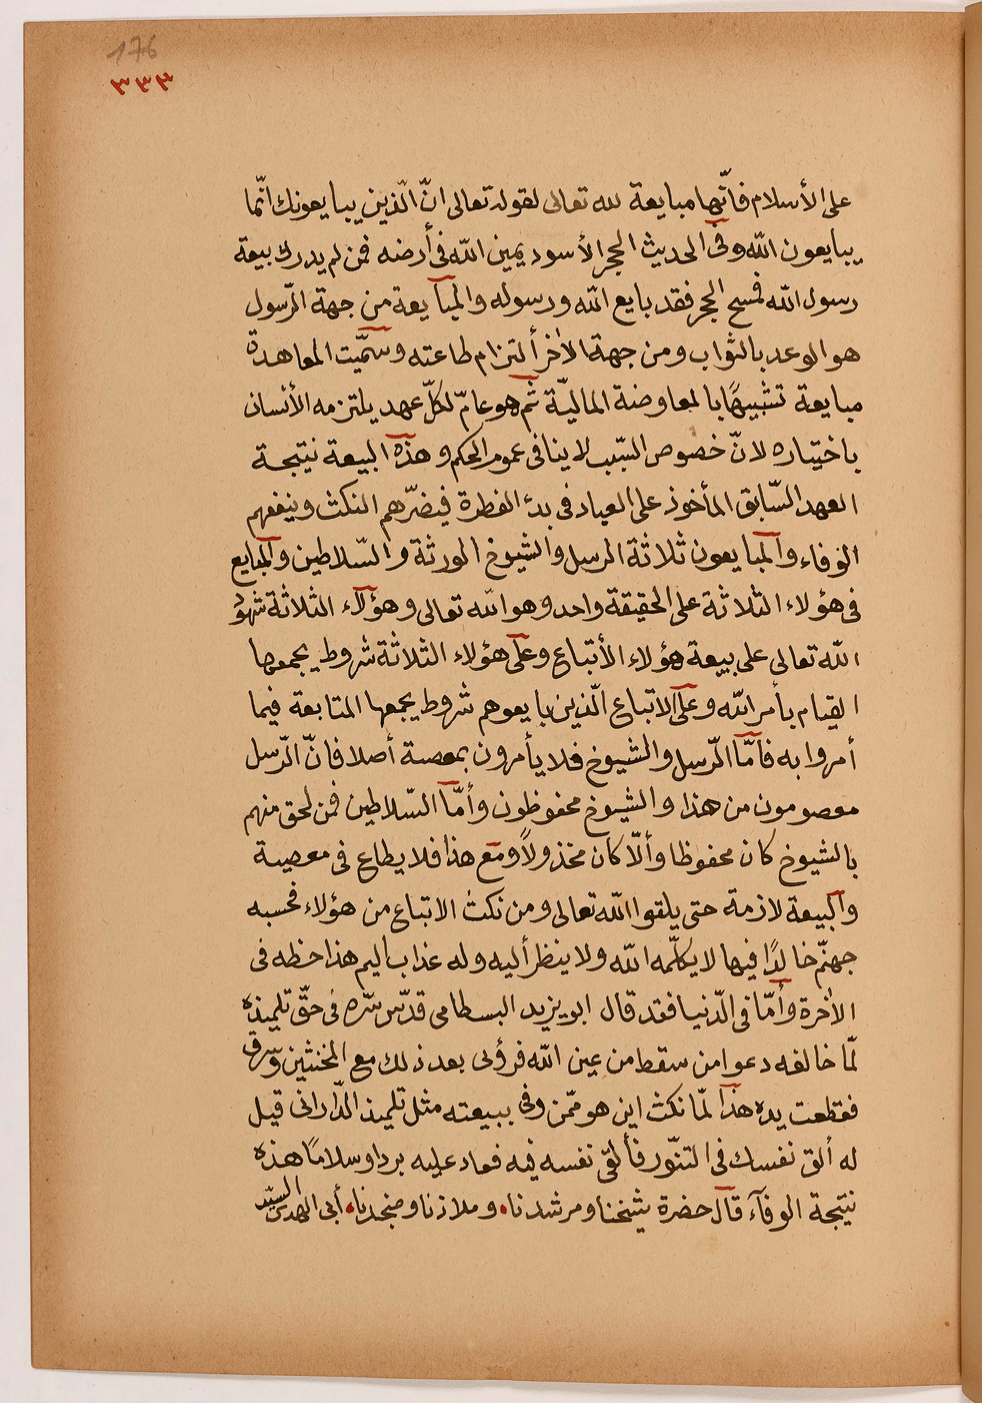 176
٣٣٣
على الأسلام فانّها مبايعة لله تعالى لقوله تعالى انّ الّذين يبايعونك انّما
يبايعون الله وفى الحديث الحجر الأسود يمين الله فى أرضه فمن لم يدرك بيعة
رسول الله فمسح الحجر فقد بايع الله ورسوله والمبايعة من جهة الرّسول
هو الوعد بالثواب ومن جهة الأخر ألتزام طاعته وسمّيت المعاهدة
مبايعة تشبيهًا بالمعاوضة الماليّة ثم هو عامّ لكلّ عهد يلتزمه الأنسان
باختياره لانّ خصوص السّبب لا ينافى عموم الحكم وهذه البيعة نتيجة
العهد السّابق المأخوذ على العباد فى بدء الفطرة فيضرّهم النكث وينفعهم
الوفاء والمبايعون ثلاثة الرسل والشيوخ الورثة والسّلاطين والمبايع
فى هؤلاء الثلاثة على الحقيقة واحد وهو الله تعالى وهؤلاء الثلاثة شهود
الله تعالى على بيعة هؤلاء الأتباع وعلى هؤلاء الثلاثة شروط يجمعها
القيام بأمر الله وعلى الاتباع الّذين بايعوهم شروط يجمعها المتابعة فيما
أمروا به فأمّا الرّسل والشيوخ فلا يأمرون بمعصية أصلا فانّ الرّسل
معصومون من هذا والشيوخ محفوظون وأمّا السّلاطين فمن لحق منهم
بالشيوخ كان محفوظا وألّا كان مخذولاً ومع هذا فلا يطاع فى معصية
والبيعة لازمة حتى يلقوا الله تعالى ومن نكث الاتباع من هؤلاء فحسبه
جهنّم خالدًا فيها لا يكلّمه الله ولا ينظر أليه وله عذاب أليم هذا حظه فى
الأخرة وأمّا فى الدّنيا فقد قال ابو يزيد البسطامى قدّس سّره فى حقّ تلميذه
لمّا خالفه دعوا من سقط من عين الله فرؤى بعد ذلك مع المخنثين وسرق
فقطعت يده هذا لمّا نكث اين هو ممّن وفى ببيعته مثل تلميذ الدّارانى قيل
له ألق نفسك فى التنّور فألقى نفسه فيه فعاد عليه بردا وسلامًا هذه
نتيجة الوفآء قال حضرة شيخنا ومرشدنا وملاذنا ومنجدنا أبى الهدى السيّد